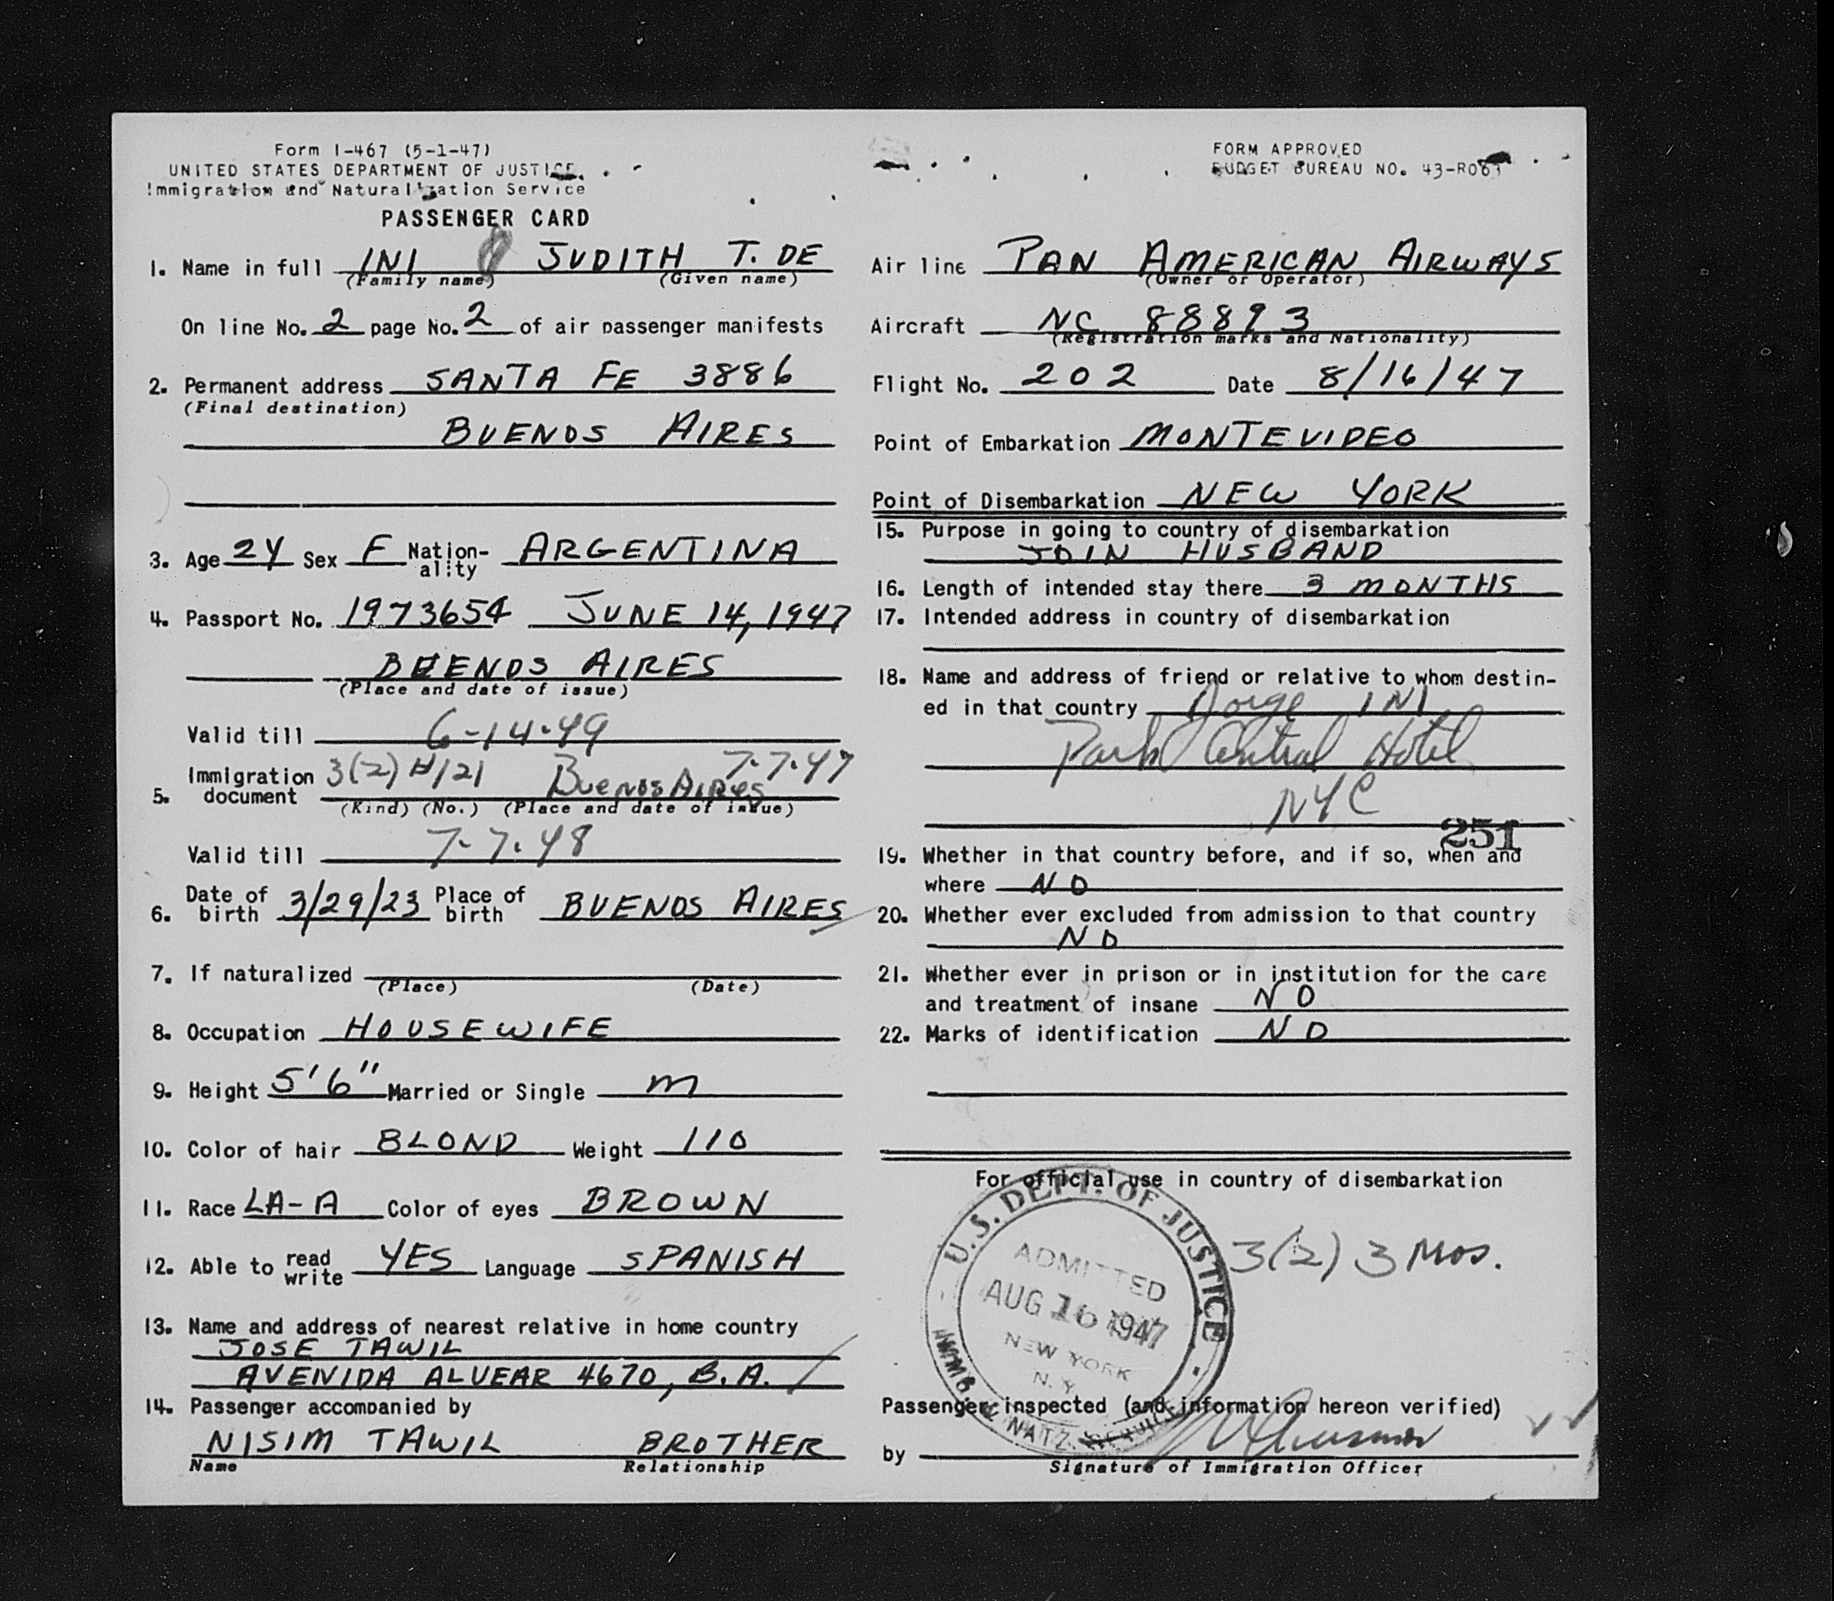 Form I-467 (5-1-47)
UNITED STATES DEPARTMENT OF JUSTICE
Immigration and Naturalization Service
PASSENGER CARD
1. Name in full INI JUDITH T. DE
(Family name) (Given name)
On line No. 2 page No. 2 of air passenger manifests
2. Permanent address SANTA FE 3886
(Final destination)
BUENOS AIRES
3. Age 24 Sex F Nation-
ality ARGENTINA
4. Passport No. 1973654 JUNE 14, 1947
BUENOS AIRES
(Place and date of issue)
Valid till 6-14-49
5. Immigration document 3(2) #121 Buenos Aires 7.7.47
(Kind) (No.) (Place and date of issue)
Valid till 7.7.48
6. Date of birth 3/29/23 Place of birth BUENOS AIRES
7. If naturalized
(Place) (Date)
8. Occupation HOUSEWIFE
9. Height 5'6" Married or Single M
10. Color of hair BLOND Weight 110
11. Race LA-A Color of eyes BROWN
12. Able to read write YES Language SPANISH
13. Name and address of nearest relative in home country
JOSE TAWIL
AVENIDA ALVEAR 4670, B.A.
14. Passenger accompanied by
NISIM TAWIL BROTHER
Name Relationship
FORM APPROVED
BUDGET BUREAU NO. 43-R061
Air line PAN AMERICAN AIRWAYS
(Owner or Operator)
Aircraft NC 88893
(Registration marks and Nationality)
Flight No. 202 Date 8/16/47
Point of Embarkation MONTEVIDEO
Point of Disembarkation NEW YORK
15. Purpose in going to country of disembarkation
JOIN HUSBAND
16. Length of intended stay there 3 MONTHS
17. Intended address in country of disembarkation
18. Name and address of friend or relative to whom destin-
ed in that country Jorge INI
Park Central Hotel
NYC
251
19. Whether in that country before, and if so, when and
where NO
20. Whether ever excluded from admission to that country
NO
21. Whether ever in prison or in institution for the care
and treatment of insane NO
22. Marks of identification NO
For official use in country of disembarkation
U.S. DEPT. OF JUSTICE
ADMITTED
AUG 16 1947
NEW YORK
N.Y.
IMMIG. & NATZ. SERVICE
3(2) 3 Mos.
Passenger inspected (and information hereon verified)
by
Signature of Immigration Officer